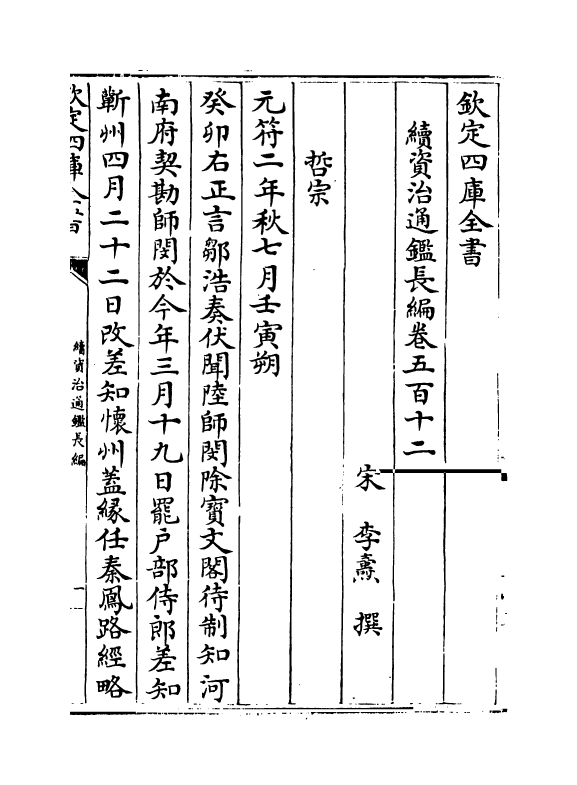 欽定四庫全書
續資治通鑑長編卷五百十二
宋　李燾　撰
哲宗
元符二年秋七月壬寅朔
癸卯右正言鄒浩奏伏聞陸師閔除寶文閣待制知河
南府契勘師閔於今年三月十九日罷户部侍郎差知
蘄州四月二十二日改差知懷州葢緣任秦鳳路經略
欽定四庫全書
續資治通鑑長編
一